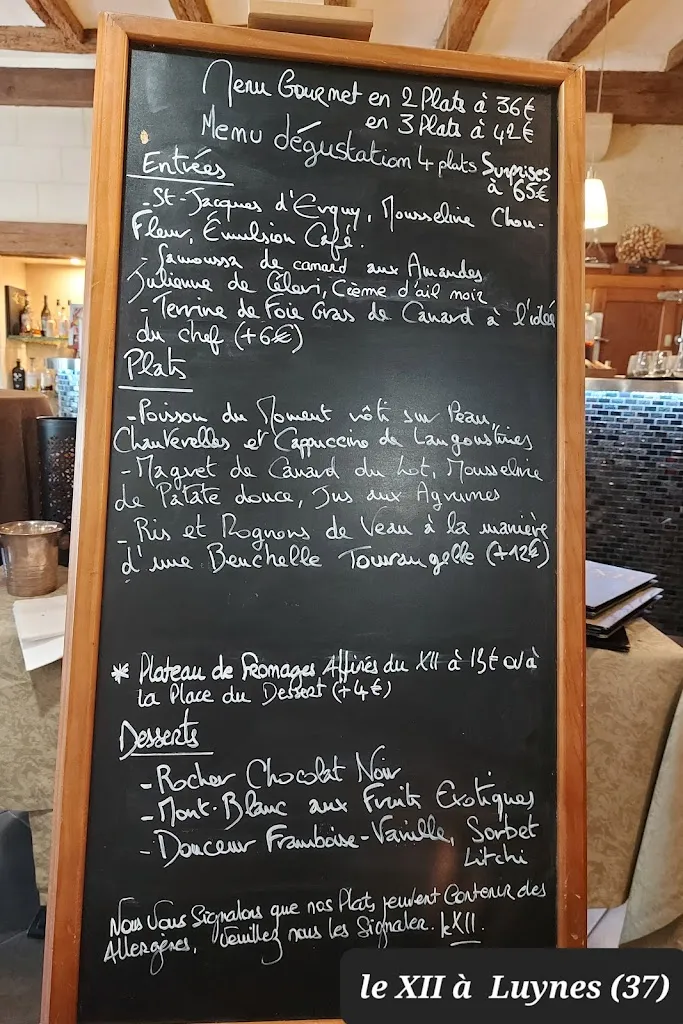 Menu Gourmet en 2 Plats à 36€
en 3 Plats à 42€
Menu dégustation 4 plats Surprises
à 65€
Entrées
- St-Jacques d'Erquy, Mousseline Chou-
Fleur, Émulsion Café.
- Samoussa de canard aux Amandes
Julienne de Céleri, Crème d'ail noir
- Terrine de Foie Gras de Canard à l'idée
du chef (+6€)
Plats
- Poisson du Moment rôti sur Peau,
Chanterelles et Cappuccino de Langoustines
- Magret de Canard du Lot, Mousseline
de Patate douce, Jus aux Agrumes
- Ris et Rognons de Veau à la manière
d'une Beuchelle Tourangelle (+12€)
* Plateau de Fromages Affinés du XII à 13€ où à
la Place du Dessert (+4€)
Desserts
- Rocher Chocolat Noir
- Mont-Blanc aux Fruits Exotiques
- Douceur Framboise-Vanille, Sorbet
Litchi
Nous Vous Signalons que nos Plats peuvent Contenir des
Allergènes, Veuillez nous les Signaler. le XII.
le XII à Luynes (37)